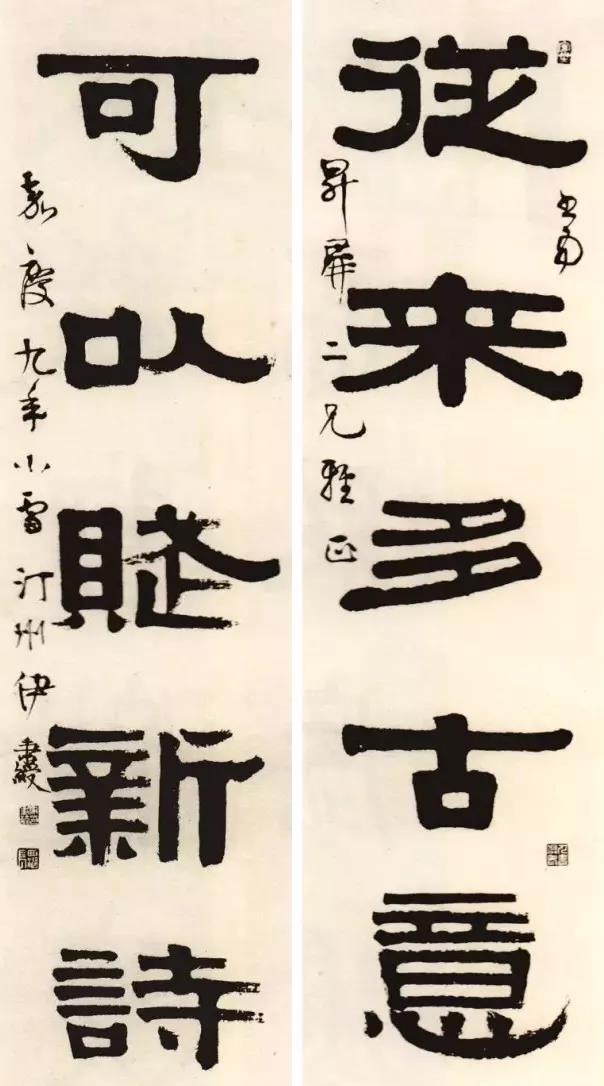 書爲
從來多古意
昇二兄雅正
可以賦新詩
嘉慶九年小雪汀州伊秉綬